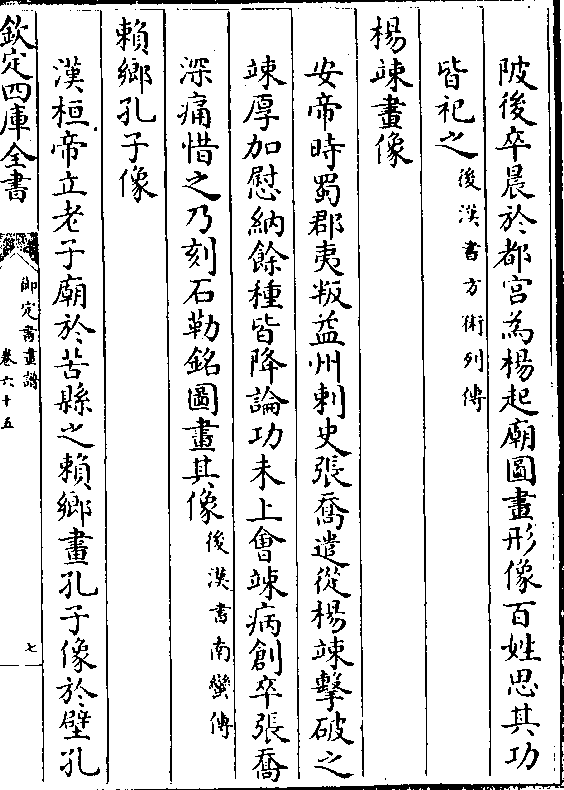 陂後卒晨於都宫為楊起廟圖畫形像百姓思其功
皆祀之後漢書方術列傳
楊竦畫像
安帝時蜀郡夷叛益州刺史張喬遣從楊竦擊破之
竦厚加慰納餘種皆降論功未上會竦病創卒張喬
深痛惜之乃刻石勒銘圖畫其像後漢書南蠻傳
賴鄉孔子像
漢桓帝立老子廟於苦縣之賴鄉畫孔子像於壁孔
欽定四庫全書
御定書畫譜
卷六十五
七